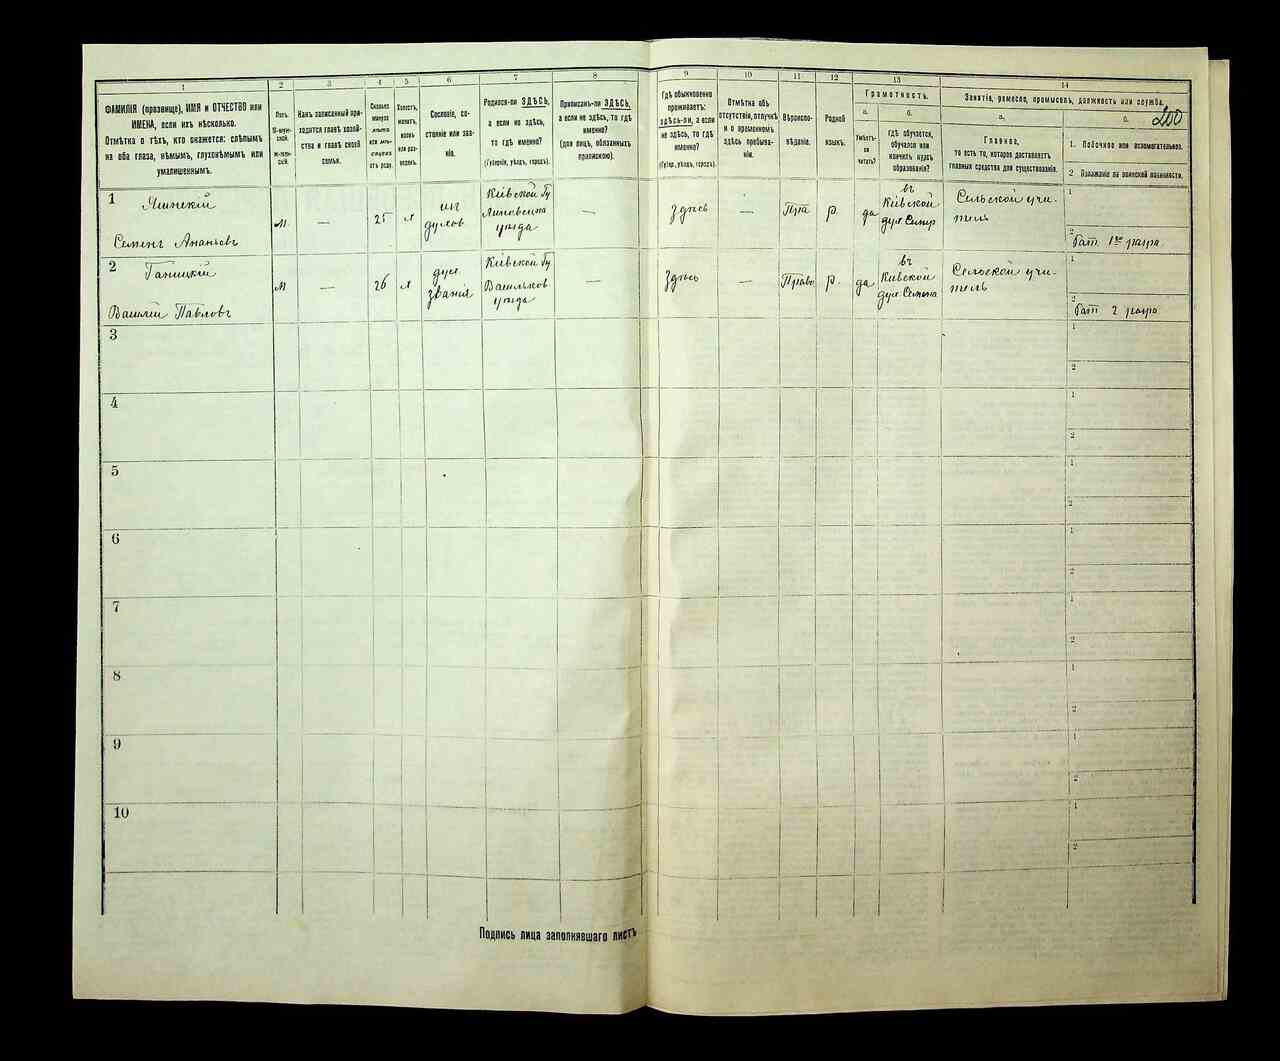 1
2
3
4
5
6
7
8
9
10
11
12
13
14
ФАМИЛІЯ (прозвище), ИМЯ и ОТЧЕСТВО или
ИМЕНА, если ихъ нѣсколько.
Отмѣтка о тѣхъ, кто окажется: слѣпымъ
на оба глаза, нѣмымъ, глухонѣмымъ или
умалишеннымъ.
Полъ.
М-муж-
ской.
Ж-жен-
скій.
Какъ записанный при-
ходится главѣ хозяй-
ства и главѣ своей
семьи.
Сколько
минуло
лѣтъ
или мѣ-
сяцевъ
отъ роду.
Холостъ,
женатъ,
вдовъ
или раз-
веденъ.
Сословіе, со-
стояніе или зва-
ніе.
Родился-ли ЗДѢСЬ,
а если не здѣсь,
то гдѣ именно?
(Губернія, уѣздъ, городъ).
Приписанъ-ли ЗДѢСЬ,
а если не здѣсь, то гдѣ
именно?
(для лицъ, обязанныхъ
припискою).
Гдѣ обыкновенно
проживаетъ:
здѣсь-ли, а если
не здѣсь, то гдѣ
именно?
(Губер., уѣздъ, городъ).
Отмѣтка объ
отсутствіи, отлучкѣ
и о временномъ
здѣсь пребыва-
ніи.
Вѣроиспо-
вѣданіе.
Родной
языкъ.
Грамотность.
а.
б.
Умѣетъ-
ли
читать?
Гдѣ обучается,
обучался или
кончилъ курсъ
образованія?
Занятіе, ремесло, промыселъ, должность или служба.
а.
б.
200
Главное,
то есть то, которое доставляетъ
главныя средства для существованія.
1. Побочное или вспомогательное.
2 Положеніе по воинской повинности.
1
Яшинскій
Семенъ Ананьевъ
м
—
25
х
духов
Кіевской Гу
Липовецка
уѣзда
—
Здѣсь
—
Пра
р.
да
въ
Кіевской
дух Семир
Сельской учи-
тель
1
2
Рат. 1го разра
2
Ганицкій
Василій Павловъ
м
—
26
х
дух
званія
Кіевской Гу
Васильков
уѣзда
—
Здѣсь
—
Право
р.
да
въ
Киевской
дух. Семина
Сельской учи-
тель
1
2
Рат 2 разра
3
1
2
4
1
2
5
1
2
6
1
2
7
1
2
8
1
2
9
1
2
10
1
2
Подпись лица заполнявшаго листъ